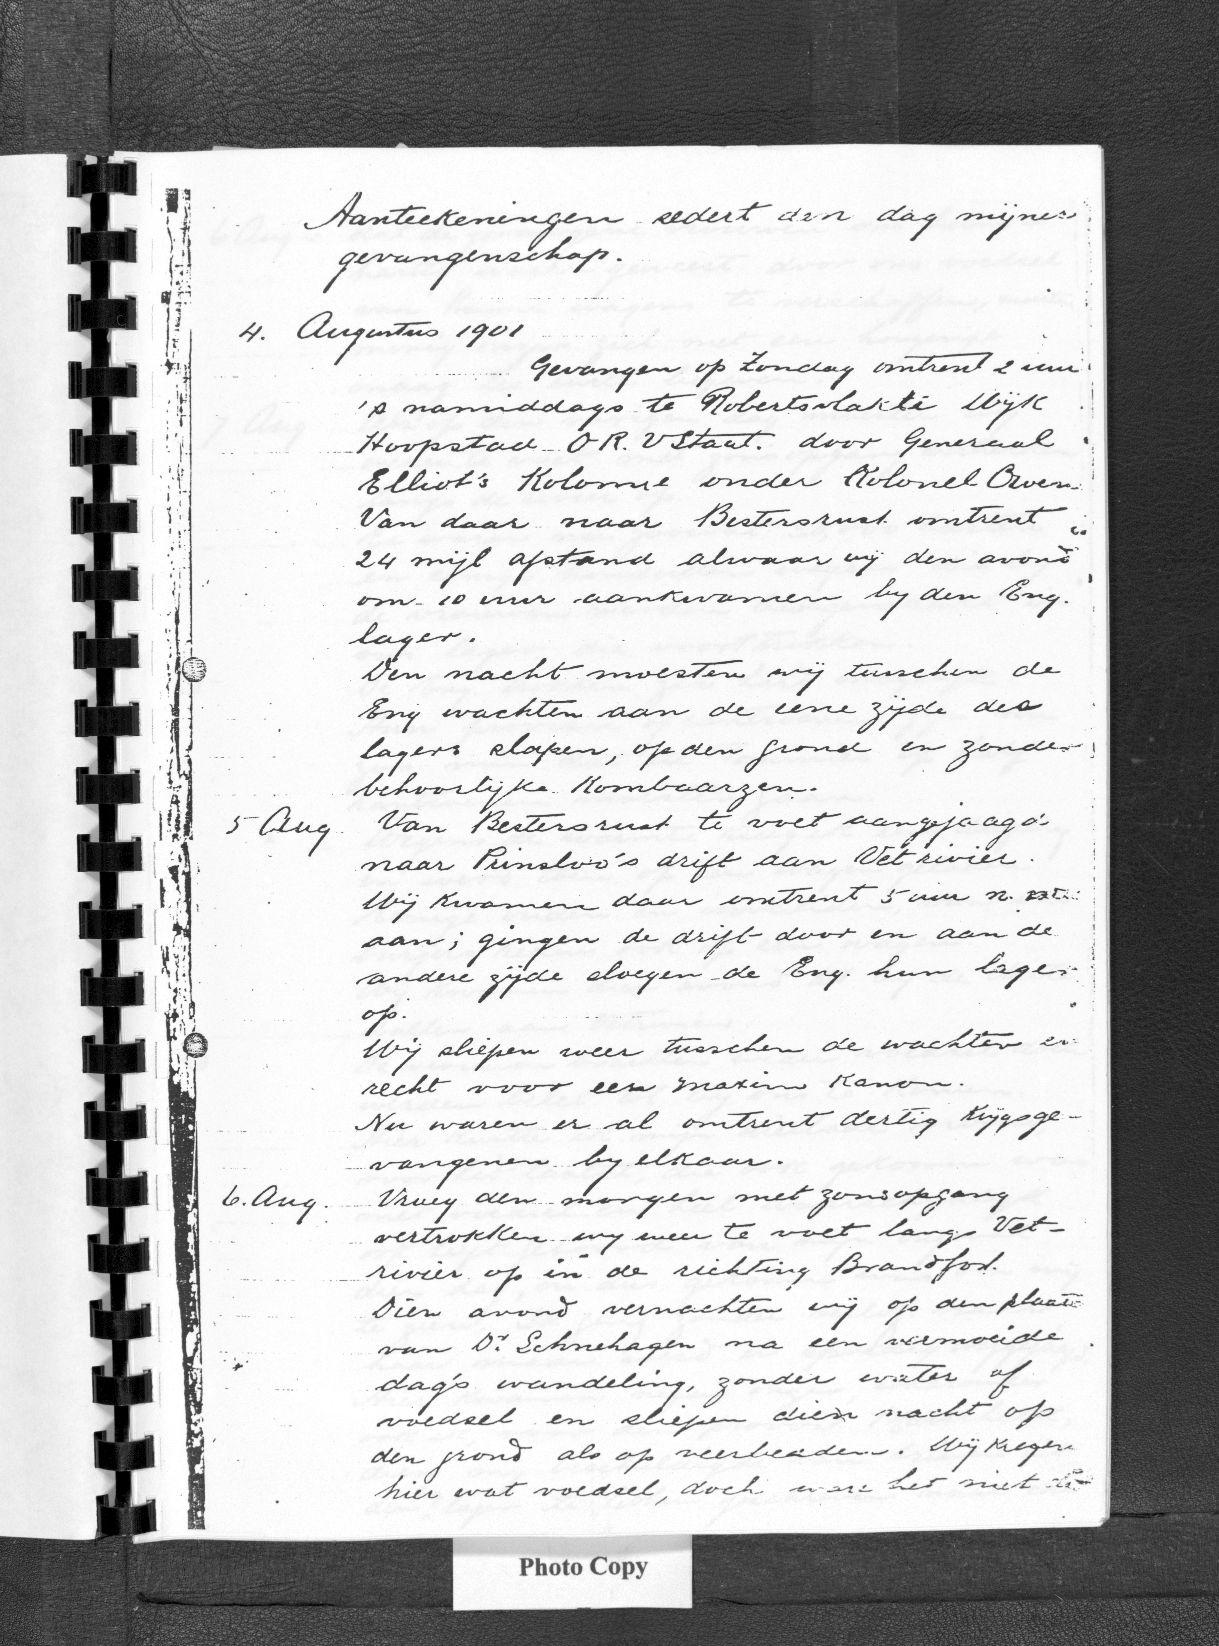 Aanteekeningen sedert den dag mijner
gevangenschap.
4. Augustus 1901
Gevangen op Zondag omtrent 2 uur
's namiddags te Robertsvlakte Wijk
Hoopstad O R. V Staat. door Generaal
Elliot's Kolonne onder Kolonel Owen.
Van daar naar Bestersrust omtrent
24 mijl afstand alwaar wij den avond
om 10 uur aankwamen by den Eng.
lager.
Den nacht moesten wij tusschen de
Eng wachten aan de eene zijde des
lagers slapen, op den grond en zonder
behoorlijke Kombaarzen.
5 Aug Van Bestersrust te voet aangejaagd
naar Prinsloo's drift aan Vet rivier.
Wij kwamen daar omtrent 5 uur n.
aan; gingen de drift door en aan de
andere zijde sloegen de Eng. hun lager
op.
Wij sliepen weer tusschen de wachten en
recht voor een maxim Kanon.
Nu waren er al omtrent dertig Krygsge-
vangenen by elkaar.
6. Aug. Vroeg den morgen met zonsopgang
vertrokken wy weer te voet langs Vet-
rivier op in de richting Brandfort.
Dien avond vernachten wij op den plaats
van Dr Schnehagen na een vermoeide
dag's wandeling, zonder water of
voedsel en sliepen dien nacht op
den grond als op veerbedden. Wij kregen
hier wat voedsel, doch ware het niet
Photo Copy